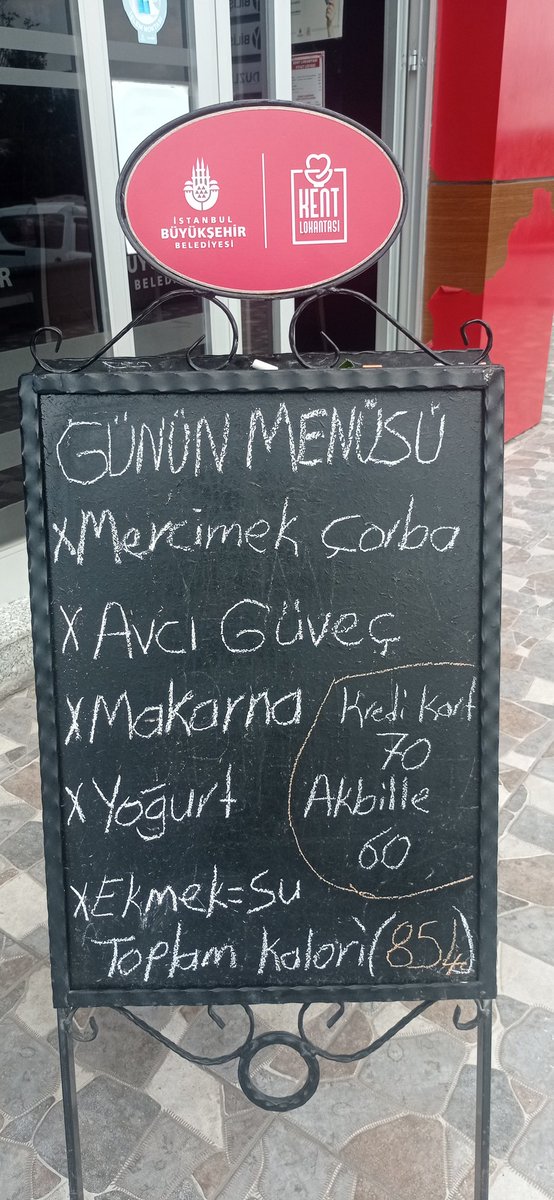 İSTANBUL
BÜYÜKŞEHİR
BELEDİYESİ
KENT
LOKANTASI
GÜNÜN MENÜSÜ
x Mercimek Çorba
x Avcı Güveç
x Makarna
Kredi Kart
70
x Yoğurt
Akbille
60
x Ekmek=Su
Toplam kalori (854)